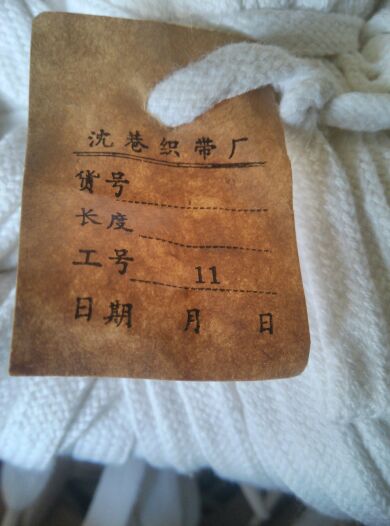 沈巷织带厂
货号
长度
工号 11
日期 月 日